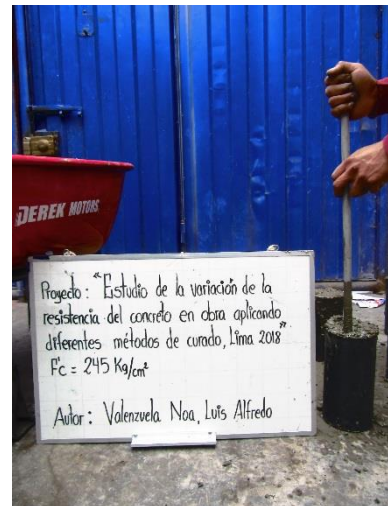 DEREK MOTORS
Proyecto: "Estudio de la variación de la
resistencia del concreto en obra aplicando
diferentes métodos de curado, Lima 2018"
F'c = 245 Kg/cm²
Autor: Valenzuela Noa, Luis Alfredo